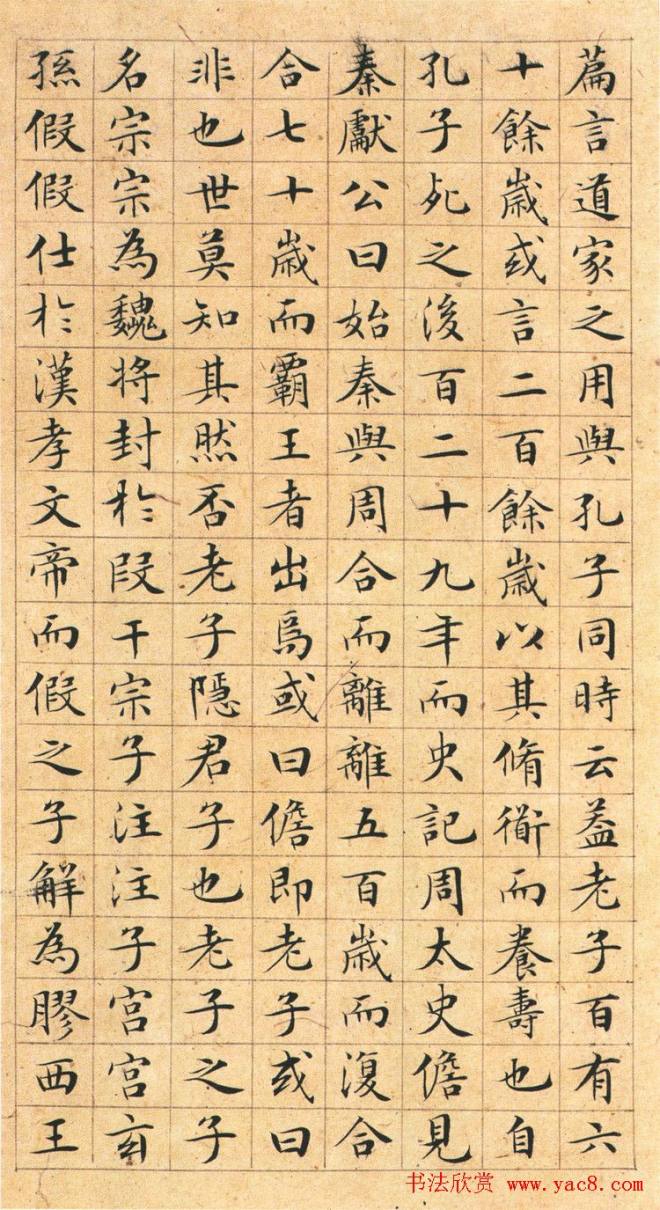 篇言道家之用與孔子同時云葢老子百有六
十餘歲或言二百餘歲以其脩衟而養壽也自
孔子死之後百二十九年而史記周太史儋見
秦獻公曰始秦與周合而離離五百歲而復合
合七十歲而霸王者出焉或曰儋即老子或曰
非也世莫知其然否老子隱君子也老子之子
名宗宗為魏將封於段干宗子注注子宮宮玄
孫假假仕於漢孝文帝而假之子解為膠西王
书法欣赏 www.yac8.com